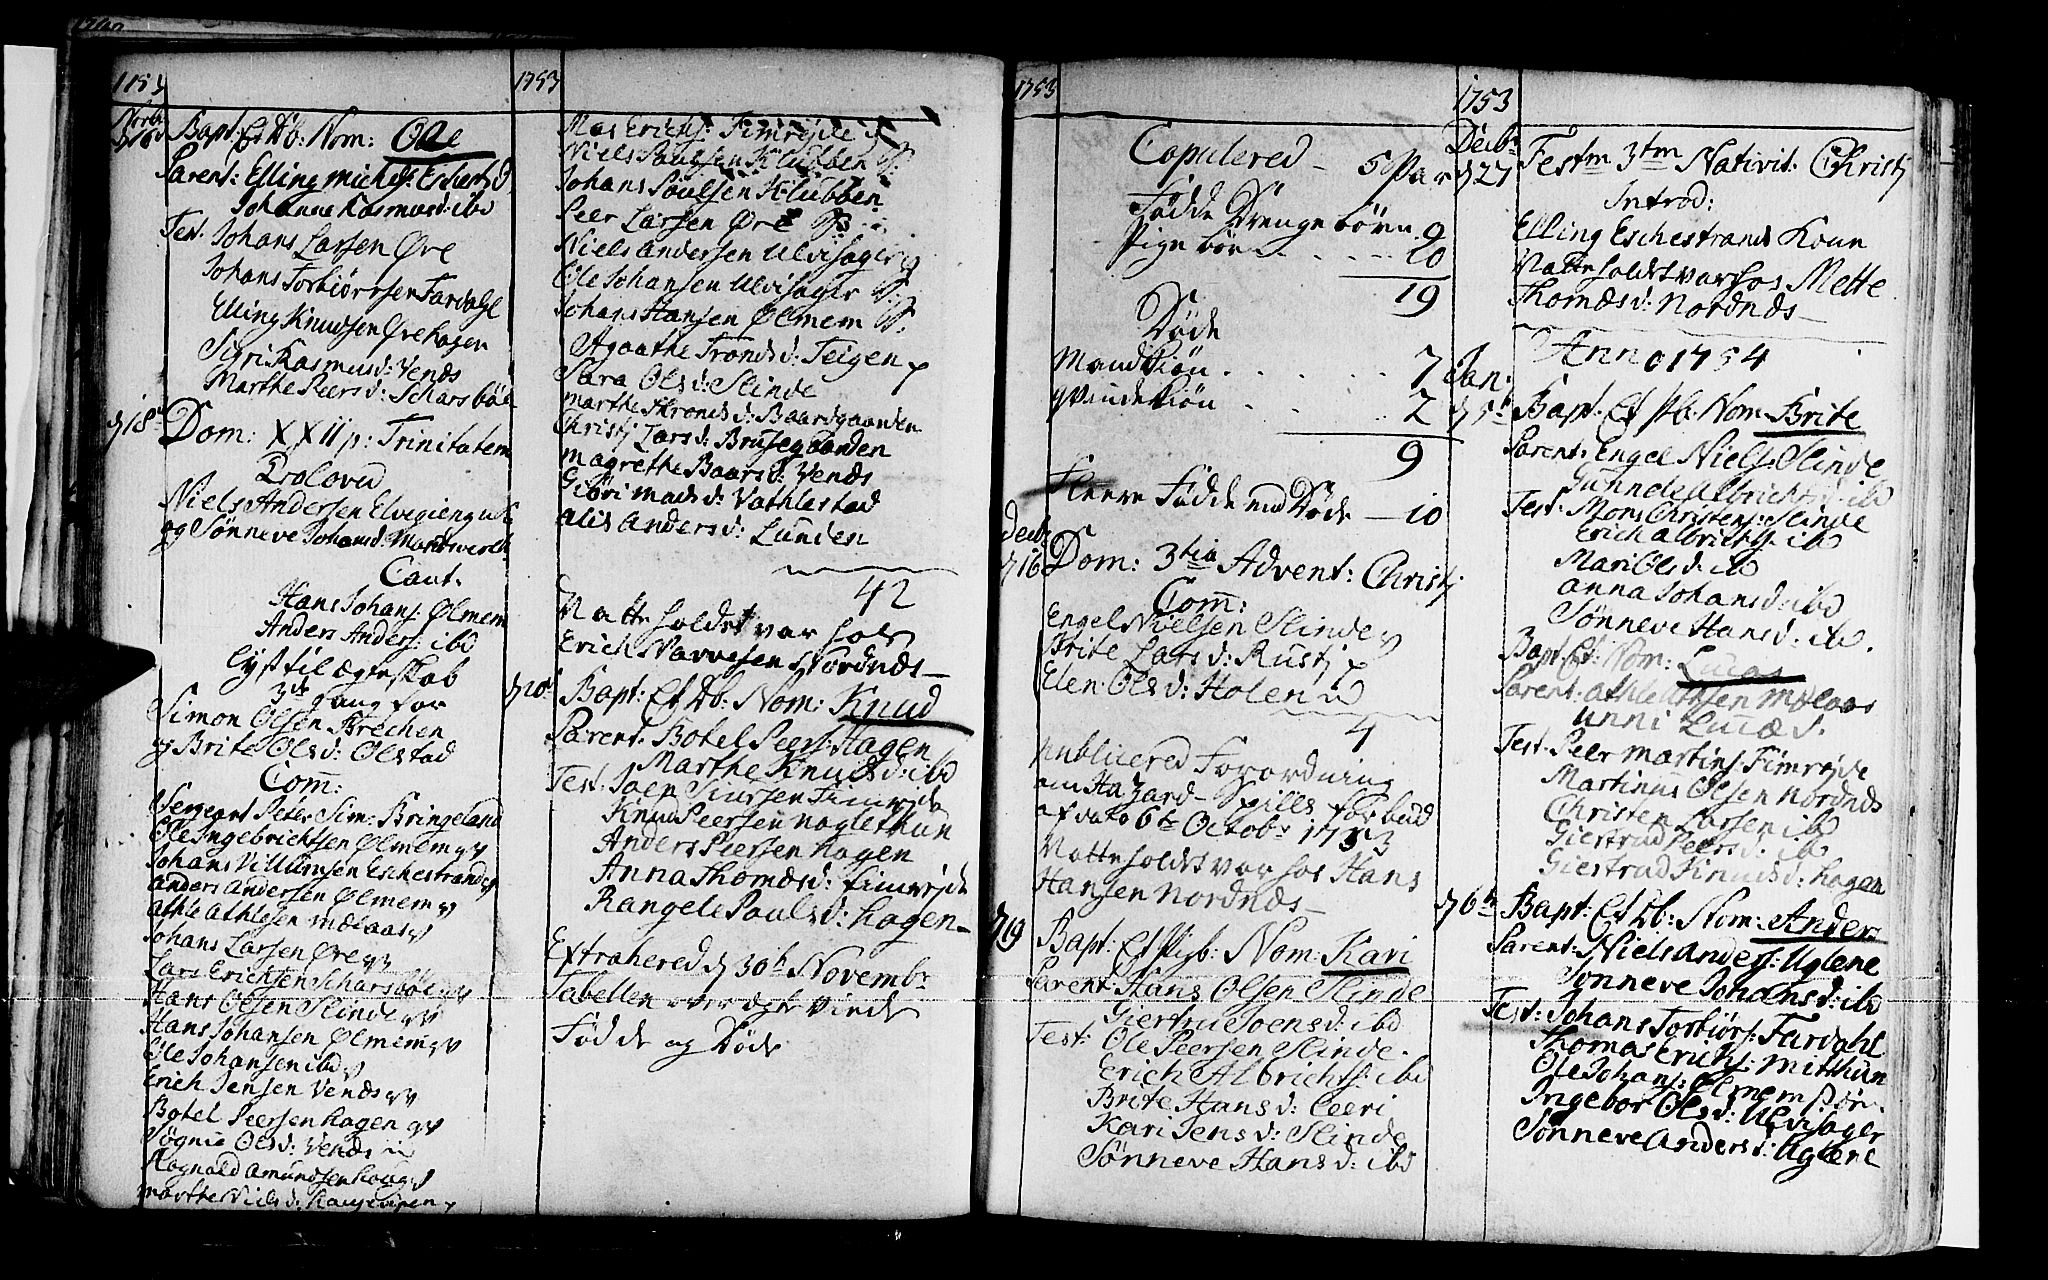 1753
Novb.
d 16
Bapt: Et Db: Nom: Ole
Parent: Elling Michels: Eschestrd
Johanne Rasmusd: ibd
Test. Johans Larsen Øre
Johans Torbiørnsen Fardahl
Elling Knudsen Øvrehagen
Sigri Rasmusd: Vends
Marthe Peersd: Scharsbøe
d 18
Dom: XXII p: Trinitatem
Trolovd
Niels Andersen
og Sønneve Johansd:
Caut.
Hans Johans: Ølmem
Anders Anders: ibd
Lyst til ægteskab
3de gang for
Simon Olsen
og Brite Olsd: Olstad
Com:
Sergeant Peter Sim: Bringeland
Ole Ingebrichtsen Ølmem
Johans Villumsen Eschestrand
Anders Andersen Ølmem
Athle Athlesen Mælaas
Johans Larsen Øre
Lars Erichsen Scharsbøe
Hans Olsen Slinde
Hans Johansen Ølmem
Ole Johansen ibd
Erich Jensen Vends
Botel Peersen Hagen
Søgnie Olsd: Vends
Ragnald Amundsen Haug
Marthe Nielsd:
1753
Mas Erichs: Fimrejte
Niels Poulsen Klubben
Johans Poulsen Klubben
Peer Larsen Øre
Niels Andersen Ulvisager
Ole Johansen Ulvisager
Johans Hansen Ølmem
Agaathe Tronds d: Teigen
Sara Olsd: Slinde
Marthe Thronds d: Baardgaarden
Christj Larsd: Brusegaarden
Magrethe Baarsd: Vends
Giøri Madsd: Vathlestad
Alis Andersd: Lunden
42
Natteholdet var hos
Erich Narvesen Nordnæs
d 20
Bapt: Et Db: Nom: Knud
Parent: Botel Peers: Hagen
Marthe Knudsd: ibd
Test. Joen Fimrejte
Knud Peersen Naglethun
Anders Peersen Hagen
Anna Thomæsd: Fimrejte
Rangele Paulsd: Hagen
Extrahered d 30th Novembr
Tabellen over
Fødde og Døde
1753
Copulered 5 Par
Fødde Drengebørn 9
Pigebørn 10
19
Døde
Mandkiøn 7
Qvindekiøn 2
9
Fleere Fødde end Døde 10
Decb:
d 16
Dom: 3tia Advent: Christj
Com:
Engel Nielsen Slinde
Brite Larsd: Rustj
Elen Olsd: Holen
4
Publicered Forordning
om Hazard Spills forbud
af dato 6te Octobr 1753
Natteholdet var hos Hans
Hansen Nordnæs
d 19
Bapt: Et Pigb: Nom: Kari
Parent: Hans Olsen Slinde
Giertrue Joensd: ibd
Test: Ole Peersen Slinde
Erich Albrichts: ibd
Brite Hansd: Leeri
Kari Jensd: Slinde
Sønneve Hansd: ibd
1753
Decbr
d 27
Festm 3tm Nativit: Christj
Introd:
Elling Eschestrands Kone
Natteholdet var hos Mette
Thomæsd: Nordnæs
Anno 1754
Jan:
d 5th
Bapt. Et Pb. Nom. Brite
Parent: Engel Niels: Slinde
Gunnele Albrichtsd: ibd
Test: Mons Christens: Slinde
Erich Albrichts: ib
Mari Olsd: ib
Anna Johansd: ibd
Sønneve Hansd: ib.
Bapt: Et: Nom: Lucas
Parent: Athle Mælaas
Unni Lucæd.
Test. Peer Martins: Fimrejte
Martinus Olsen Nordnæs
Christen Larsen ib
Giertrud Peersd: ib
Giertrud Knudsd: Hagen
d 6th
Bapt: Et Db: Nom: Anders
Parent: Niels Anders: Uglene
Sønneve Johansd: ibd
Test: Johans Torbiørs: Fardahl
Thomas Erichs: Mitthun
Ole Johans: Ølmem
Ingebor Olsd: Ulvisager
Sønneve Andersd: Uglene